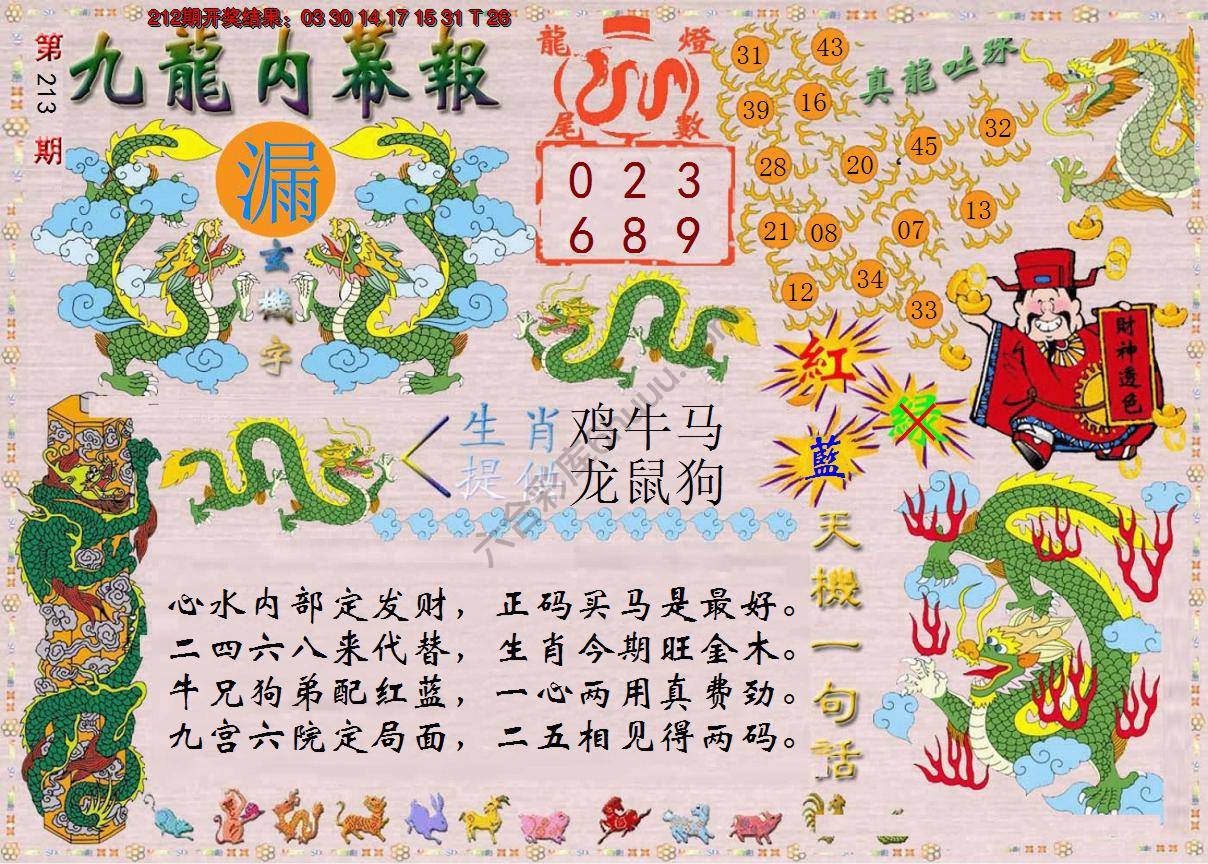 212期开奖结果：03 30 14 17 15 31 T 26
第213期
九龍内幕報
漏
玄機字
龍燈
尾數
0 2 3
6 8 9
真龍吐珠
31 43
39 16
28 20 45 32
21 08 07 13
12 34 33
財神透色
紅
绿
藍
生肖 鸡牛马
提供 龙鼠狗
六合彩库
心水内部定发财，正码买马是最好。
二四六八来代替，生肖今期旺金木。
牛兄狗弟配红蓝，一心两用真费劲。
九宫六院定局面，二五相见得两码。
天機一句話